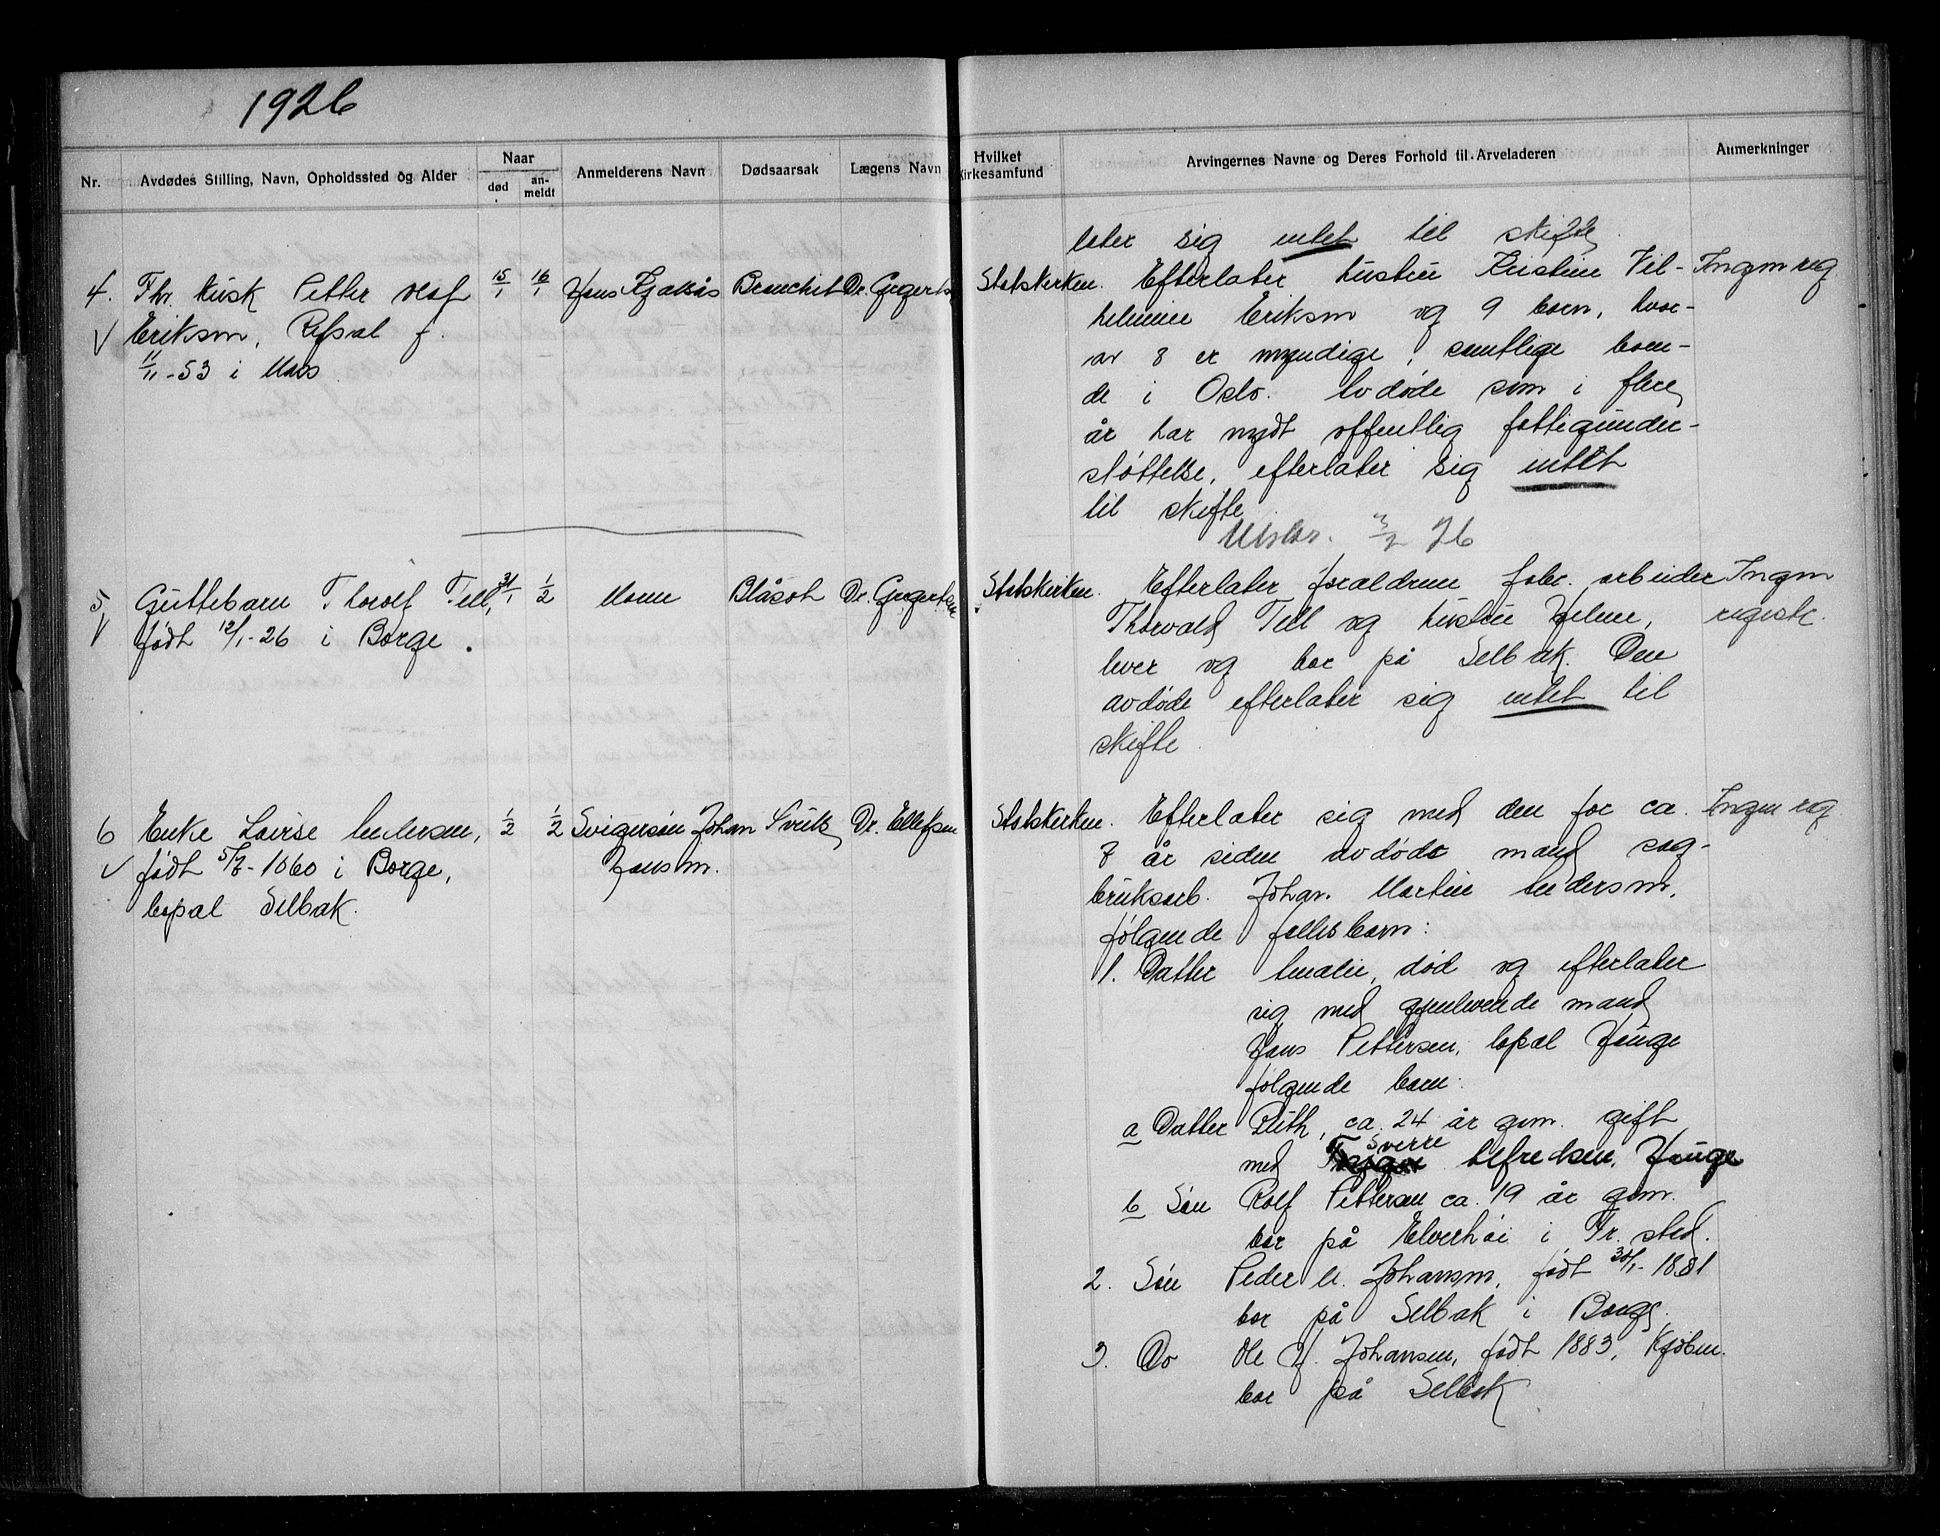 1926
Nr.
Avdødes Stilling, Navn, Opholdssted og Alder
Naar
død
an-
meldt
Anmelderens Navn
Dødsaarsak
Lægens Navn
Hvilket
Kirkesamfund
Arvingernes Navne og Deres Forhold til Arveladeren
Anmerkninger
later sig intet til skifte
4. Fhv. Husk Petter Olaf
Eriksen, Refsal f.
11/11-53 i Moss
15/1 16/1 Hans Bronchit Dr.
Statskirken. Efterlater hustru Kristine Vil-
helmine Eriksen og 9 barn, hvor-
av 8 er myndige, samtlige boen-
de i Oslo. Avdøde som i flere
år har nydt offentlig fattigunder-
støttelse, efterlater sig intet
til skifte
Ingen reg
Utskr. 3/2 26
5 Guttebarn Thorolf Tell,
født 12/1-26 i Borge.
31/1 1/2 Moren Blåsot Dr.
Statskirken. Efterlater forældrene fabr. arbeider
Thorvald Tell og hustru Helene,
lever og bor på Selbak. Den
avdøde efterlater sig intet til
skifte.
Ingen
registr.
6 Enke Lovise Andersen,
født 5/7-1860 i Borge,
bopæl Selbak.
1/2 1/2 Svigersøn Johan
Hansen.
Dr. Ellefsen
Statskirken. Efterlater sig med den for ca.
7 år siden avdøde mand sag-
bruksarb. Johan Martin Andersen,
følgende fellesbarn:
Ingen reg
1. Datter Amalie, død og efterlater
sig med gjenlevende mand
Hans Pettersen, bopæl Hauge
følgende barn:
a Datter Ruth, ca. 24 år gm. gift
Sverre
med Alfredsen, Hauge
b Søn Rolf Pettersen ca. 19 år gm.
bor på Elverhøi i Fr.sted.
2. Søn Peder A. Johansen, født 30/1-1881
bor på Selbak i Borge.
3. Do Ole H. Johansen, født 1883,
bor på Selbak